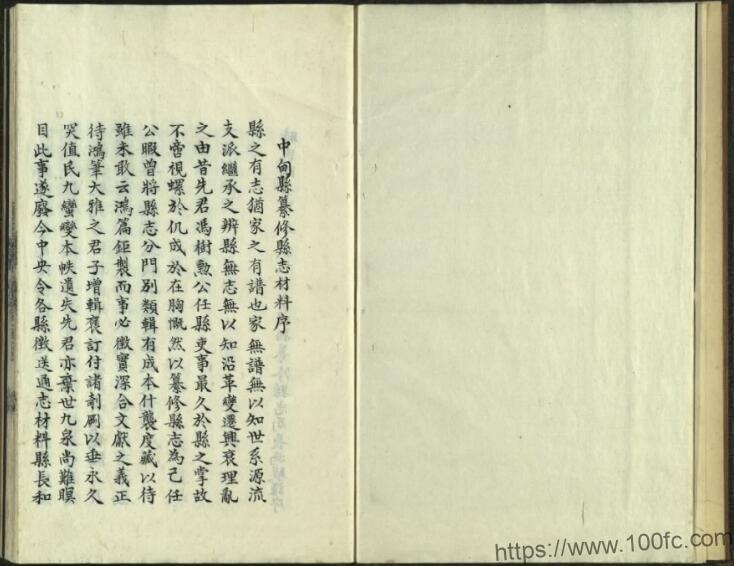 中甸縣纂修縣志材料序
縣之有志猶家之有譜也家無譜無以知世系源流
支派繼承之辨縣無志無以知沿革變遷興衰理亂
之由昔先君馮樹勲公任縣吏事最久於縣之掌故
不啻視螺於仉成於在胸慨然以纂修縣志為己任
公暇曾將縣志分門別類輯有成本什襲度藏以待
雖未敢云鴻篇鉅製而事必徵實深合文獻之義正
待鴻筆大雅之君子增輯裒訂付諸剞劂以垂永久
突值氏九蠻變本帙遺失先君亦棄世九泉尚難瞑
目此事遂廢今中央令各縣徵送通志材料縣長和
https://www.100fc.com